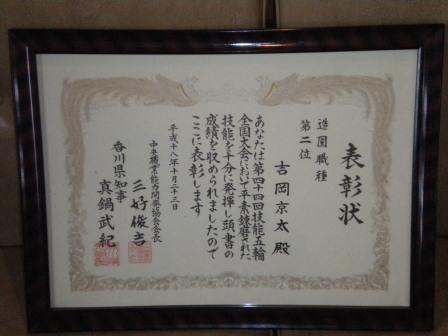 表彰状
造園職種
第二位
吉岡京太 殿
あなたは第四十四回技能五輪
全国大会において平素錬磨された
技能を十分に発揮し頭書の
成績を収められましたので
ここに表彰します
平成十八年十月二十三日
中央職業能力開発協会会長
三好俊吉
香川県知事
真鍋武紀